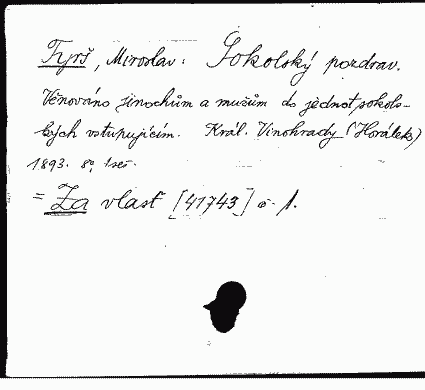 Tyrš, Miroslav: Sokolský pozdrav.
Věnováno jinochům a mužům do jednot sokols-
kých vstupujícím. Král. Vinohrady (Horálek)
1893. 8º, 1 seš.
= Za vlast [41743] č. 1.